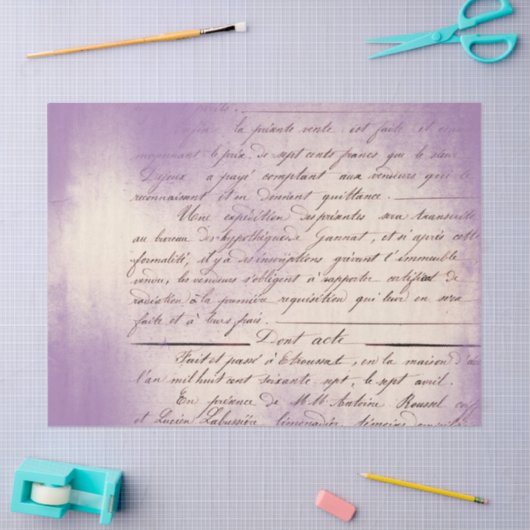 Enfin la présente vente est faite et
moyennant le prix de sept cents francs que le sieur
Dejoux a payé comptant aux vendeurs qui le
reconnaissent et en donnent quittance.
Une expédition des présentes sera transcrite
au bureau des hypothèques de Gannat, et si après cette
formalité, il y a des inscriptions grévant l'immeuble
vendu, les vendeurs s'obligent à rapporter certificat de
radiation à la première réquisition qui leur en sera
faite et à leurs frais.
Dont acte
Fait et passé à Etroussat, en la maison
l'an mil huit cent soixante-sept, le sept avril.
En présence de M.M. Antoine Roussel
et Lucien Labussière limonadier, témoins